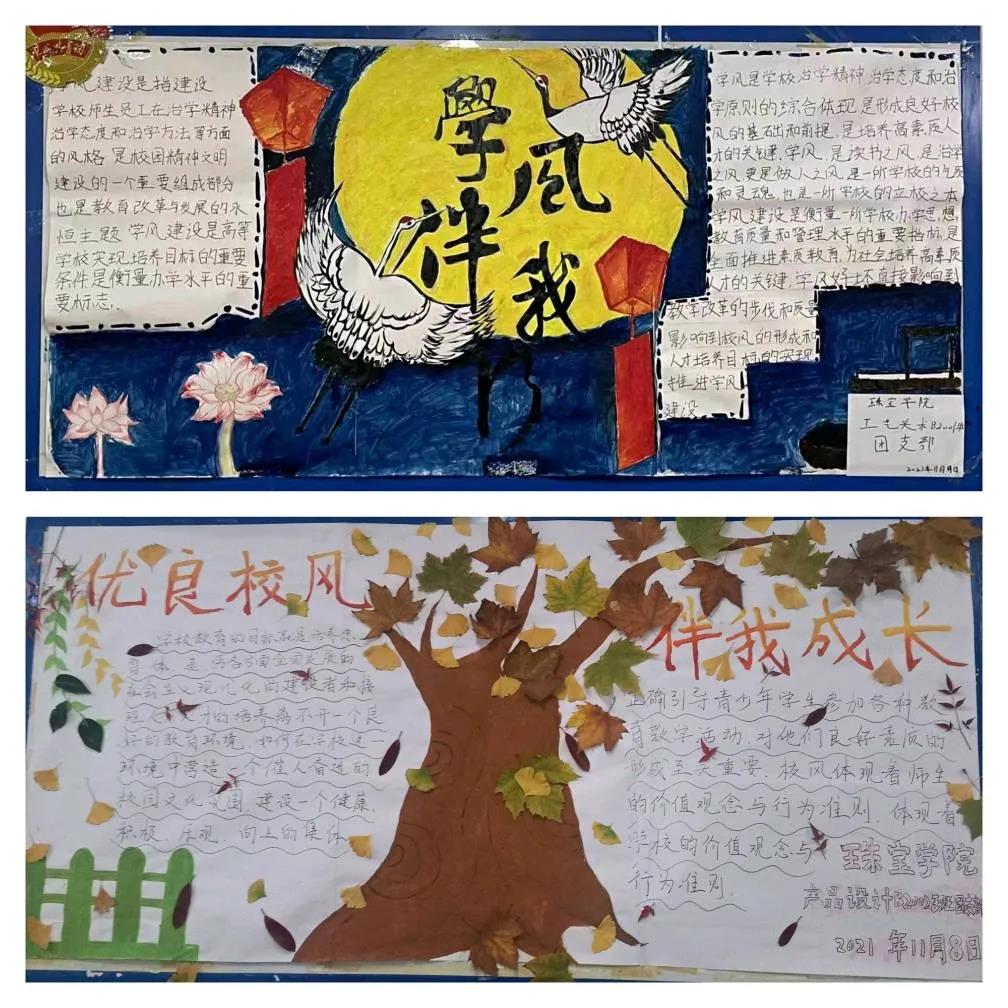 学风建设是指建设
学校师生员工在治学精神
治学态度和治学方法等方面
的风格 是校园精神文明
建设的一个重要组成部分
也是教育改革与发展的永
恒主题 学风建设是高等
学校实现培养目标的重要
条件是衡量办学水平的重
要标志.
學风
伴我
行
学风是学校治学精神 治学态度和治
学原则的综合体现 是形成良好校
风的基础和前提 是培养高素质人
才的关键.学风.是读书之风.是治学
之风.更是做人之风.是一所学校的气质
和灵魂.也是一所学校的立校之本
学风建设是衡量一所学校办学思想,
教育质量和管理水平的重要指标.是
全面推进素质教育.为社会培养高素质
人才的关键.学风好坏直接影响到
教学改革的步伐和质量
影响到校风的形成和
人才培养目标的实现
推进学风
建设
珠宝学院
工艺美术B2001班
团支部
2021年11月8日
优良校风
学校教育的目标就是培养德
智体美劳各方面全面发展的
社会主义现代化的建设者和接
人才的培养离不开一个良
好的教育环境.如何在学校这一
环境中营造一个催人奋进的
校园文化氛围.建设一个健康.
积极.乐观.向上的集体
伴我成长
正确引导青少年学生参加各种教
育教学活动.对他们良好素质的
形成至关重要.校风体现着师生
的价值观念与行为准则.体现着
学校的价值观念与
行为准则.
珠宝学院
产品设计B2002班团支部
2021年11月8日